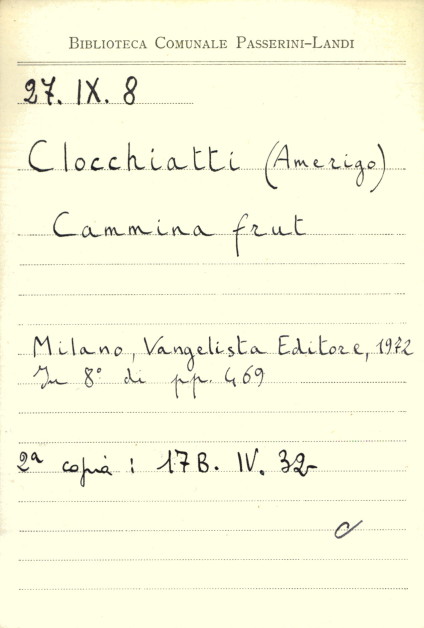 BIBLIOTECA COMUNALE PASSERINI-LANDI
27. IX. 8
Clocchiatti (Amerigo)
Cammina frut
Milano, Vangelista Editore, 1972
In 8° di pp. 469
2ª copia : 17B. IV. 32